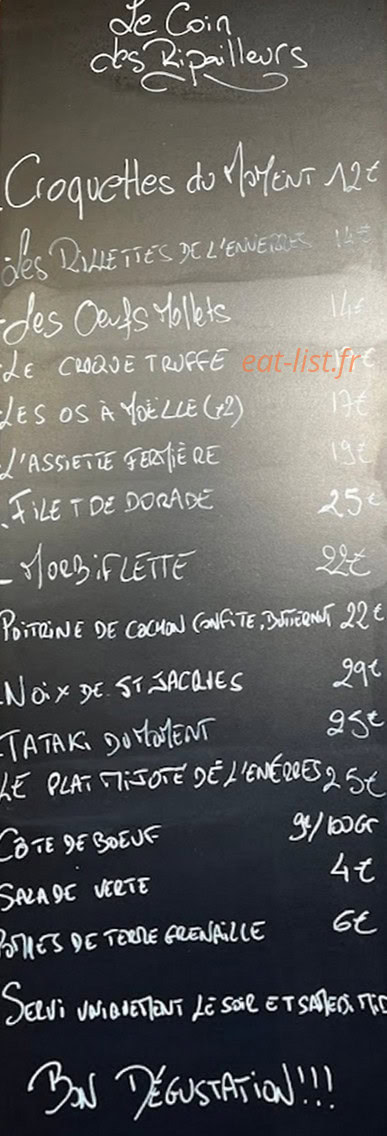 Le Coin
des Ripailleurs
Croquettes du MOMENT 12€
Les RILLETTES DE L'ENVERRES 14€
des Oeufs Mollets 14€
LE CROQUE TRUFFE €
eat-list.fr
LES OS À MOËLLE (x2) 17€
L'ASSIETTE FERMIÈRE 19€
FILET DE DORADE 25€
- MORBIFLETTE 22€
POITRINE DE COCHON CONFITE, BUTTERNUT 22€
NOIX DE ST JACQUES 29€
TATAKI DU MOMENT 25€
LE PLAT MIJOTÉ DE L'ENERRES 25€
CÔTE DE BOEUF 9€/100GR
SALADE VERTE 4€
POMMES DE TERRE GRENAILLE 6€
SERVI UNIQUEMENT LE SOIR ET SAMEDI MIDI
BON DÉGUSTATION!!!